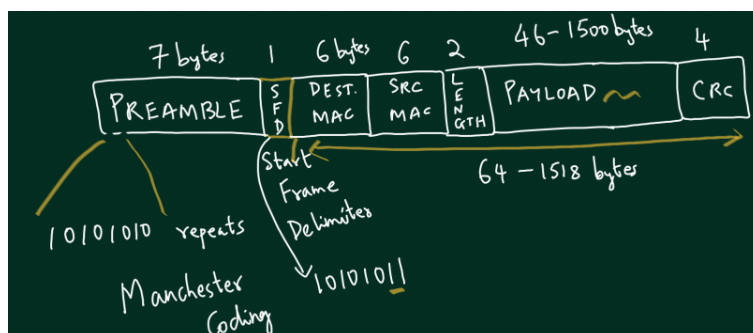 7 bytes 1 6 bytes 6 2 46-1500 bytes 4
PREAMBLE SFD DEST. MAC SRC MAC LENGTH PAYLOAD CRC
Start Frame Delimiter
64-1518 bytes
10101010 repeats
10101011
Manchester
Coding